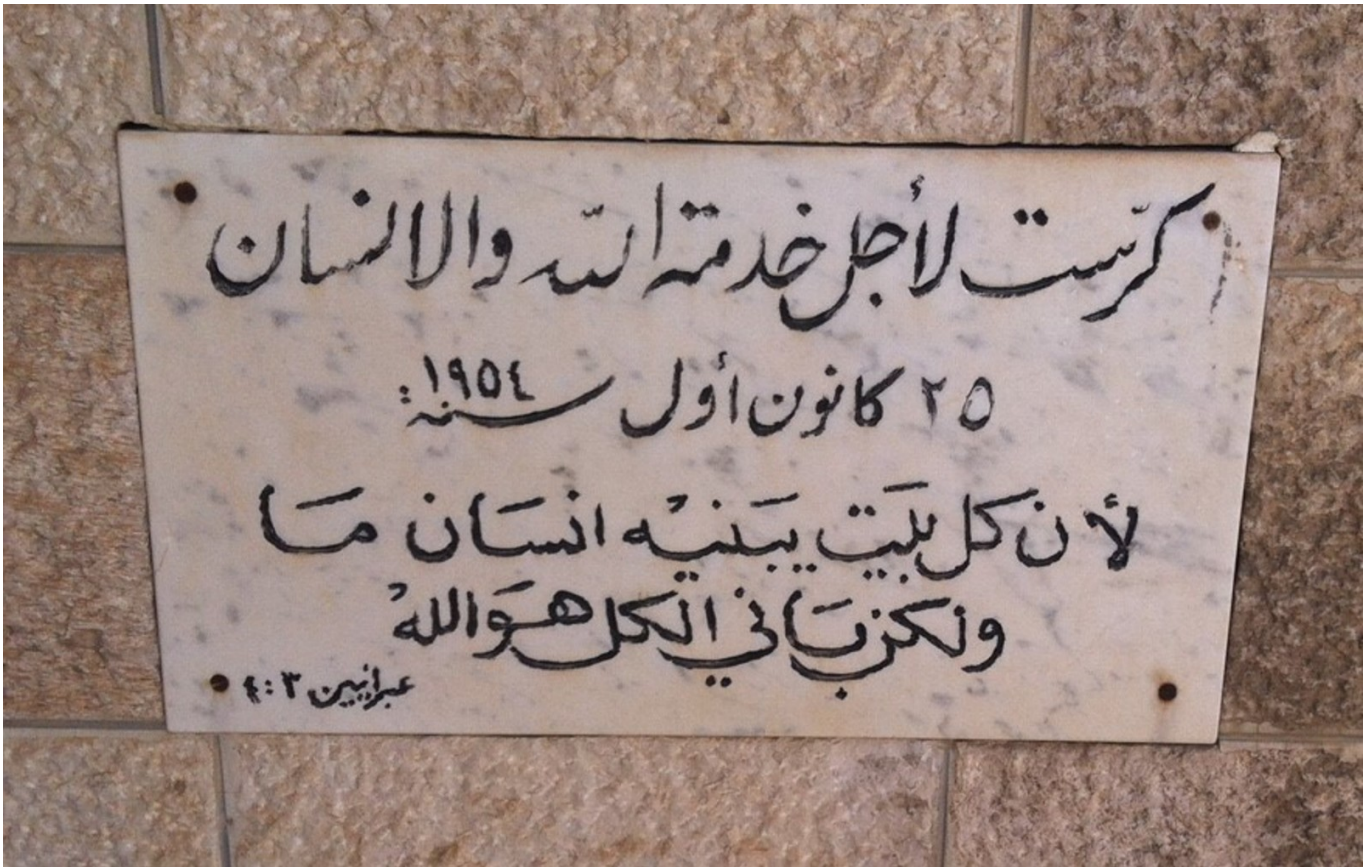 كرّست لأجل خدمة الله والانسان
٢٥ كانون أول سنة ١٩٥٤:
لأن كل بيت يبنيه انسان ما
ولكن باني الكل هو الله
عبرانيين ٣:٤